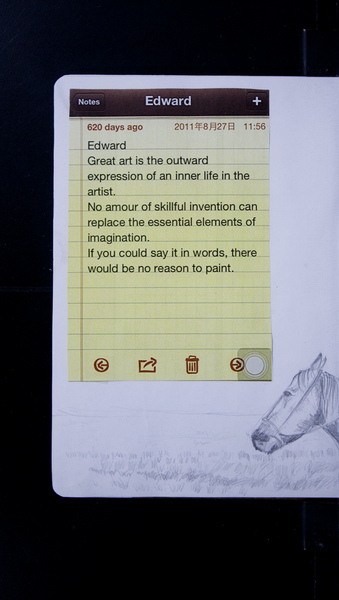 Notes
Edward
+
620 days ago 2011年8月27日 11:56
Edward
Great art is the outward
expression of an inner life in the
artist.
No amour of skillful invention can
replace the essential elements of
imagination.
If you could say it in words, there
would be no reason to paint.